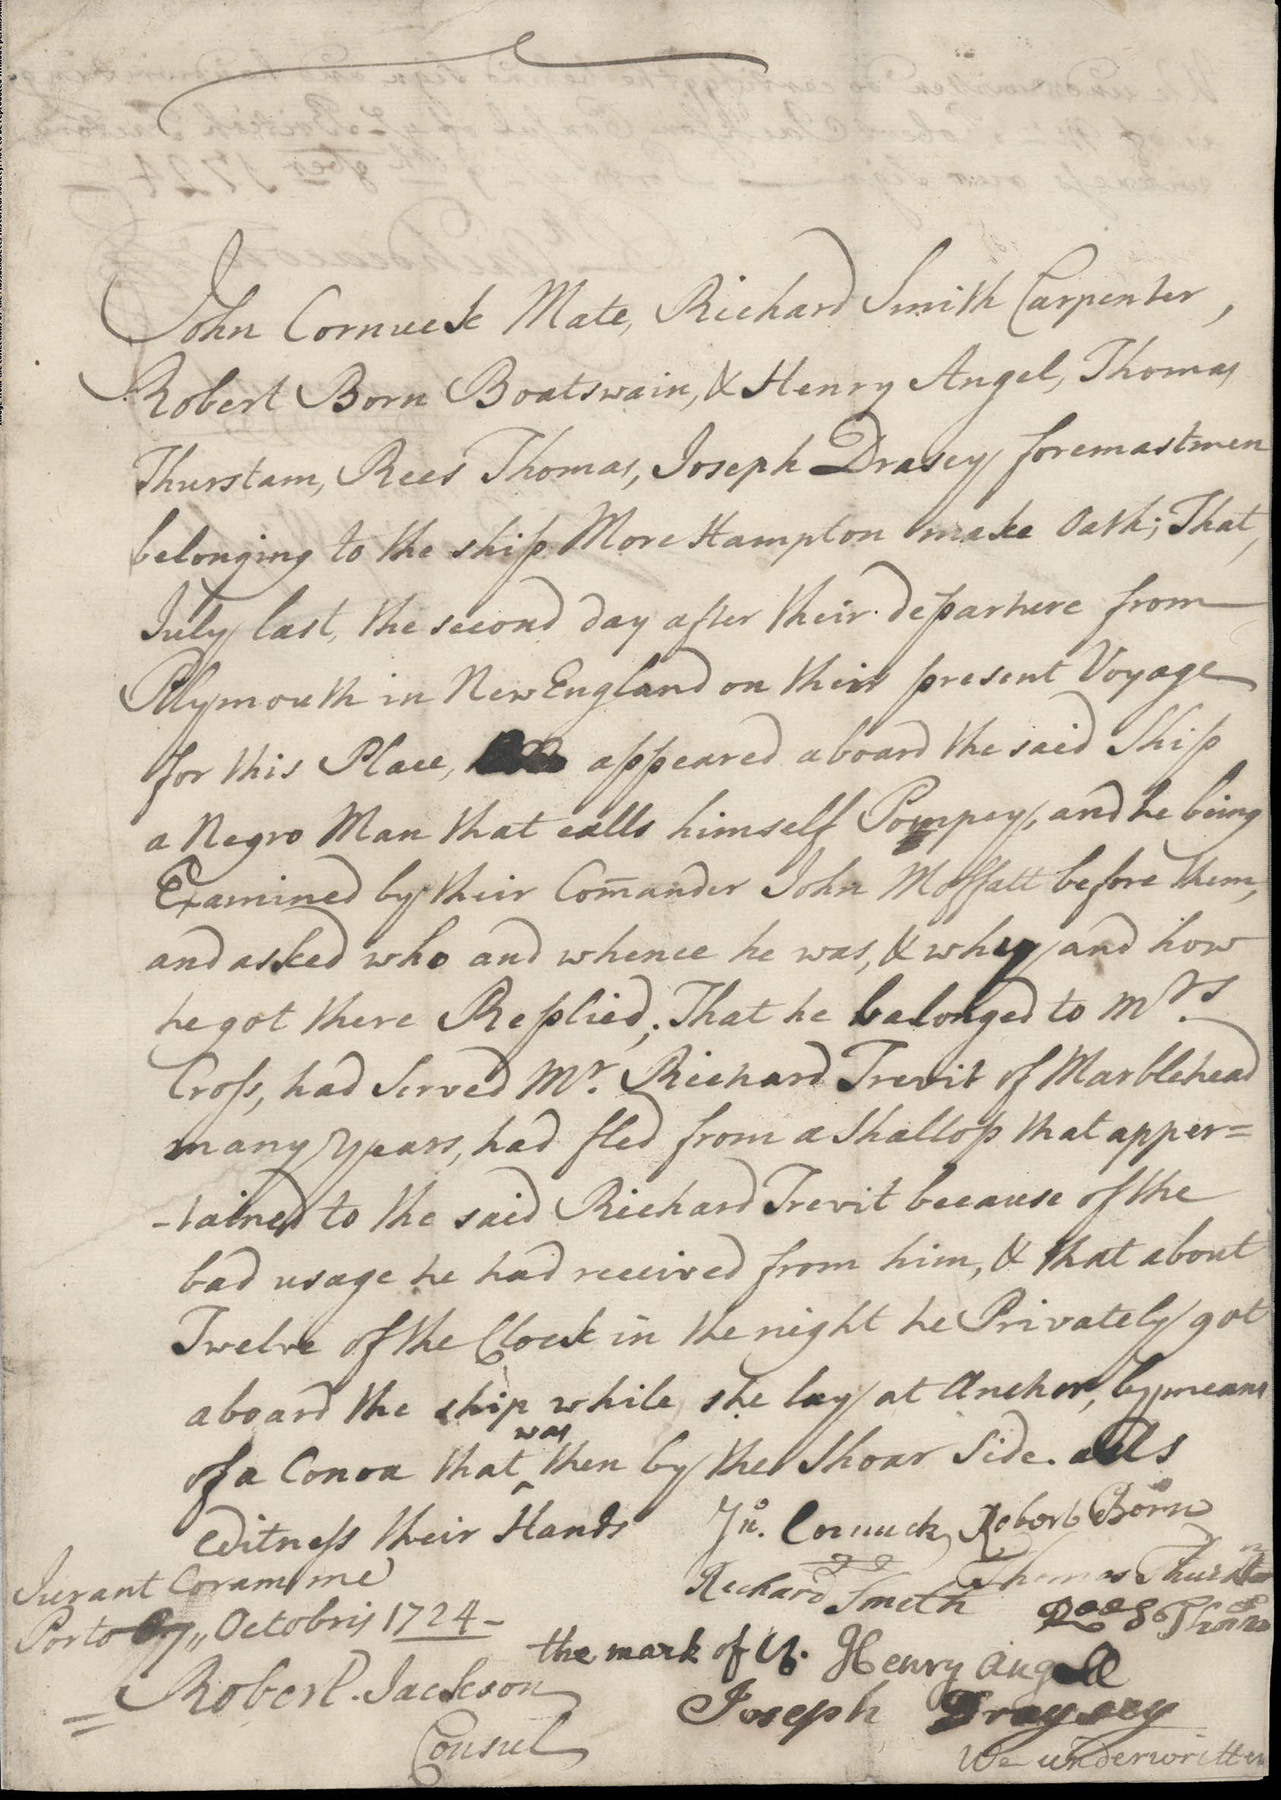 John Cornuck Mate, Richard Smith Carpenter,
Robert Born Boatswain, & Henry Angel, Thomas
Thurstam, Rees Thomas, Joseph Drasey foremastmen
belonging to the ship More Hampton make Oath; That,
July last, the second day after their departure from
Plymouth in New England on their present Voyage
for this Place, appeared aboard the said Ship
a Negro Man that calls himself Pompey, and he being
Examined by their Com̄ander John Moffatt before them,
and asked who and whence he was, & why and how
he got there Replied; That he belonged to Mrs.
Cross, had Served Mr. Richard Trevit of Marblehead
many years, had fled from a Shallop that apper=
-tained to the said Richard Trevit because of the
bad usage he had received from him, & that about
Twelve of the Clock in the night he Privately got
aboard the ship while she lay at Anchor, by means
of a Conoa that ^was then by the Shoar Side. als
Witness their Hands
Jno. Cornuck Robert Born
Richard Smith Thomas
Rees Thomas
the mark of Henry Angell
Joseph Draysey
Jurant Coram me
Porto Octobris 1724-
Robert Jackson
Consul
We underwritten